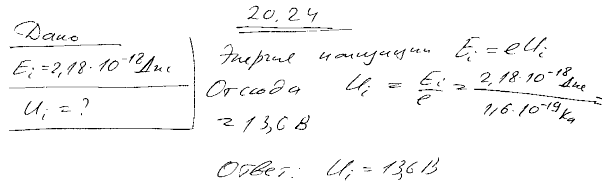 20.24
Дано
Ei = 2,18·10⁻¹⁸ Дж
Ui = ?
Энергия ионизации Ei = eUi
Отсюда Ui = Ei/e = 2,18·10⁻¹⁸ Дж / 1,6·10⁻¹⁹ Кл =
= 13,6 В
Ответ: Ui = 13,6 В